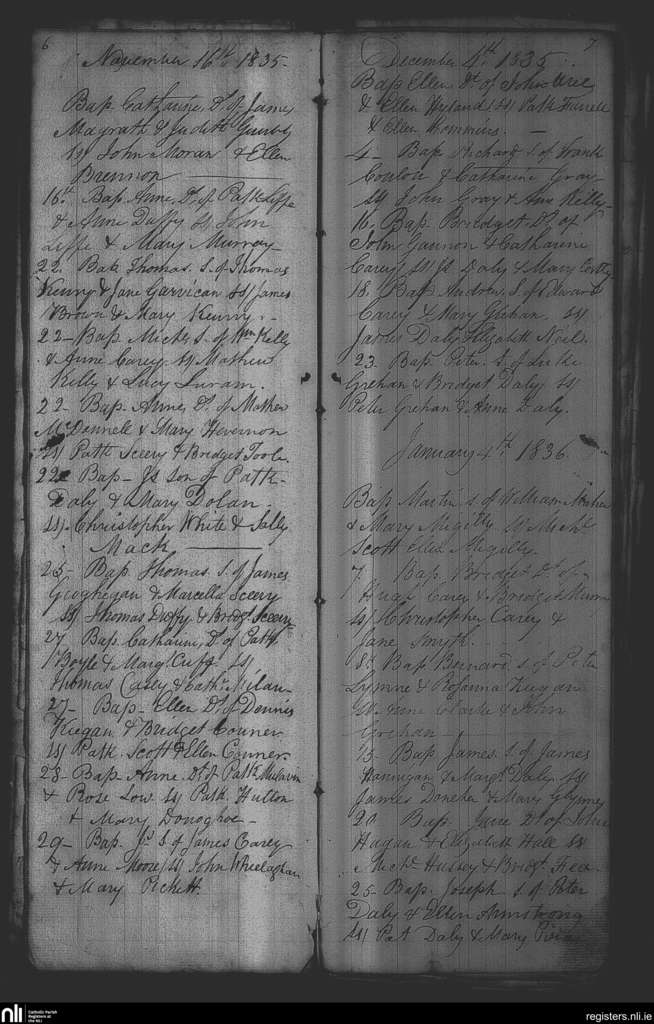 6
November 16th 1835-
Bap Catharine, Dt of James
Magrath & Judith
John Moran & Ellen
Brennon
16th Bap. Anne, Dt of Patk Liffe
& Anne Duffy John
Liffe & Mary Murray
22. Bap Thomas. S. of Thomas
Kenny & Jane Garvican James
Brown & Mary Kenny.
22- Bap. Michl S. of Wm Kelly
& Anne Carey Mathew
Kelly & Lucy
22- Bap. Anne, Dt. of Mathew
McDonnell & Mary Hevernon
Patk Sceery & Bridget Toole.
22 Bap- Js Son of Patk-
Daly & Mary Dolan.
Christopher White & Sally
Mack
25- Bap Thomas. S. of James
Geoghegan & Marcella Sceery
Thomas Duffy & Bridgt Sceery
27 Bap. Catharine, Dt of Patk
Boyle & Margt
Thomas Casey & Cath.
27- Bap- Ellen Dt of Dennis
Keegan & Bridget Conner
Patk. Scott & Ellen Conner.
28- Bap Anne. Dt of Patk
& Rose Low Patk. Hutton
& Mary Donoghoe-
29- Bap. Js S. of James Carey
& Anne Moore John Wheelaghan
& Mary Pickett.
7
December 4th 1835
Bap Ellen, Dt. of John
& Ellen Hyland Patk Farrell
& Ellen
4- Bap Richard S. of Frank
& Catharine Gray-
John Gray & Ann Kelly
16. Bap. Bridget Dt of
John Gannon & Catharine
Carey Js Daly & Mary
18. Bap Andrew, S. of Edward
Carey & Mary Grehan.
James Daly Elizabeth Neil.
23. Bap Peter. S. of Luke
Grehan & Bridget Daly
Peter Grehan & Anne Daly.
January 4th 1836
Bap Martin S. of William
& Mary Megilty Michl
Scott Ellen Megilty.
7. Bap Bridget Dt of
Hugh Carey & Bridget
Christopher Carey &
Jane Smyth.
8th Bap Bernard S. of Peter
& Rosanna Keegan
Anne Clarke & John
Grehan
15- Bap James. S. of James
Hannigan & Margt Daly.
James & Mary Glynney
20 Bap. Jane Dt of John
Hagan & Elizabeth Hall
Michl Hussey & Bridgt
25- Bap. Joseph S. of Peter
Daly & Ellen Armstrong
Pat Daly & Mary
nli
Catholic Parish
Registers at
the NLI
registers.nli.ie